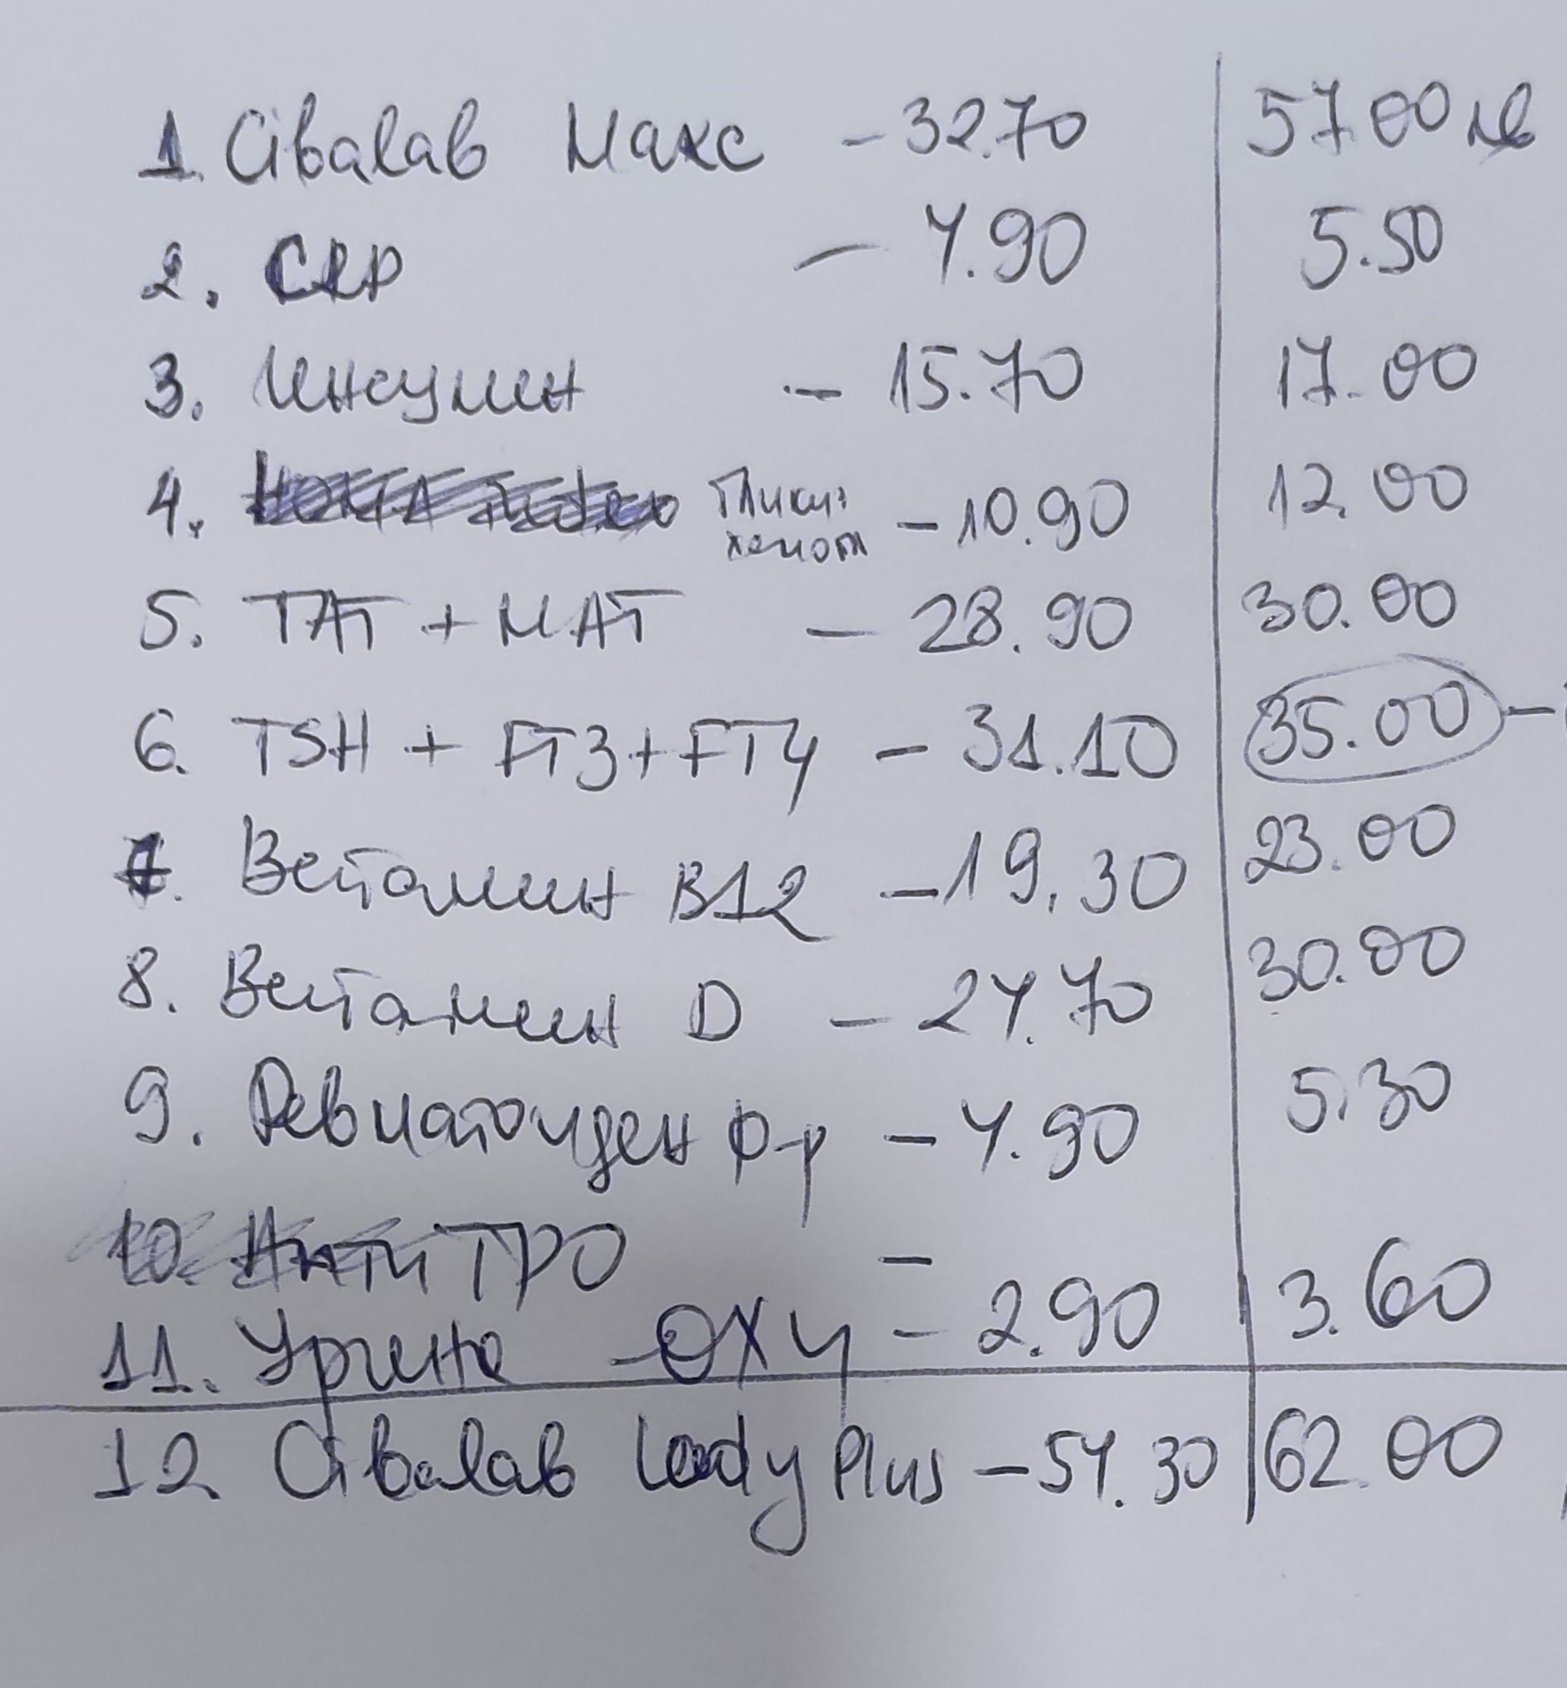 1. Cibalab Макс - 32.70 57.00 лв
2. CRP - 4.90 5.50
3. Инсулин - 15.70 17.00
4. HOMA Index Глики: хемогл - 10.90 12.00
5. ТАТ + МАТ - 28.90 30.00
6. TSH + FT3 + FT4 - 31.10 35.00 -
7. Витамин B12 - 19.30 23.00
8. Витамин D - 24.70 30.00
9. Ревматоиден ф-р - 4.90 5.30
10. Анти TPO -
11. Урина - ОХУ - 2.90 3.60
12. Cibalab Lady Plus - 54.30 62.00